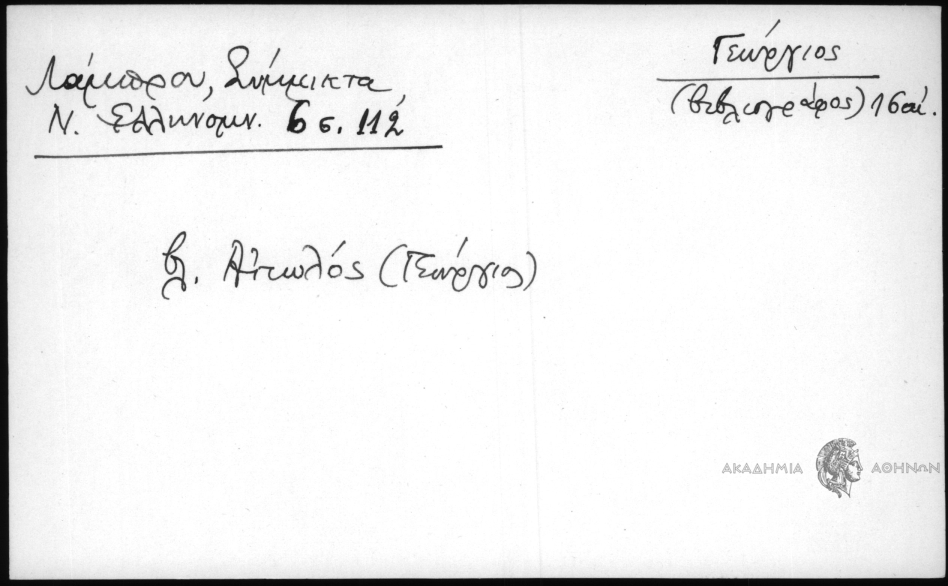 Λάμπρου, Σύμμικτα,
Ν. Ελληνομν. 6 σ. 112
Γεώργιος
(βιβλιογράφος) 16 αἰ.
βλ. Αἰτωλός (Γεώργιος)
ΑΚΑΔΗΜΙΑ ΑΘΗΝΩΝ